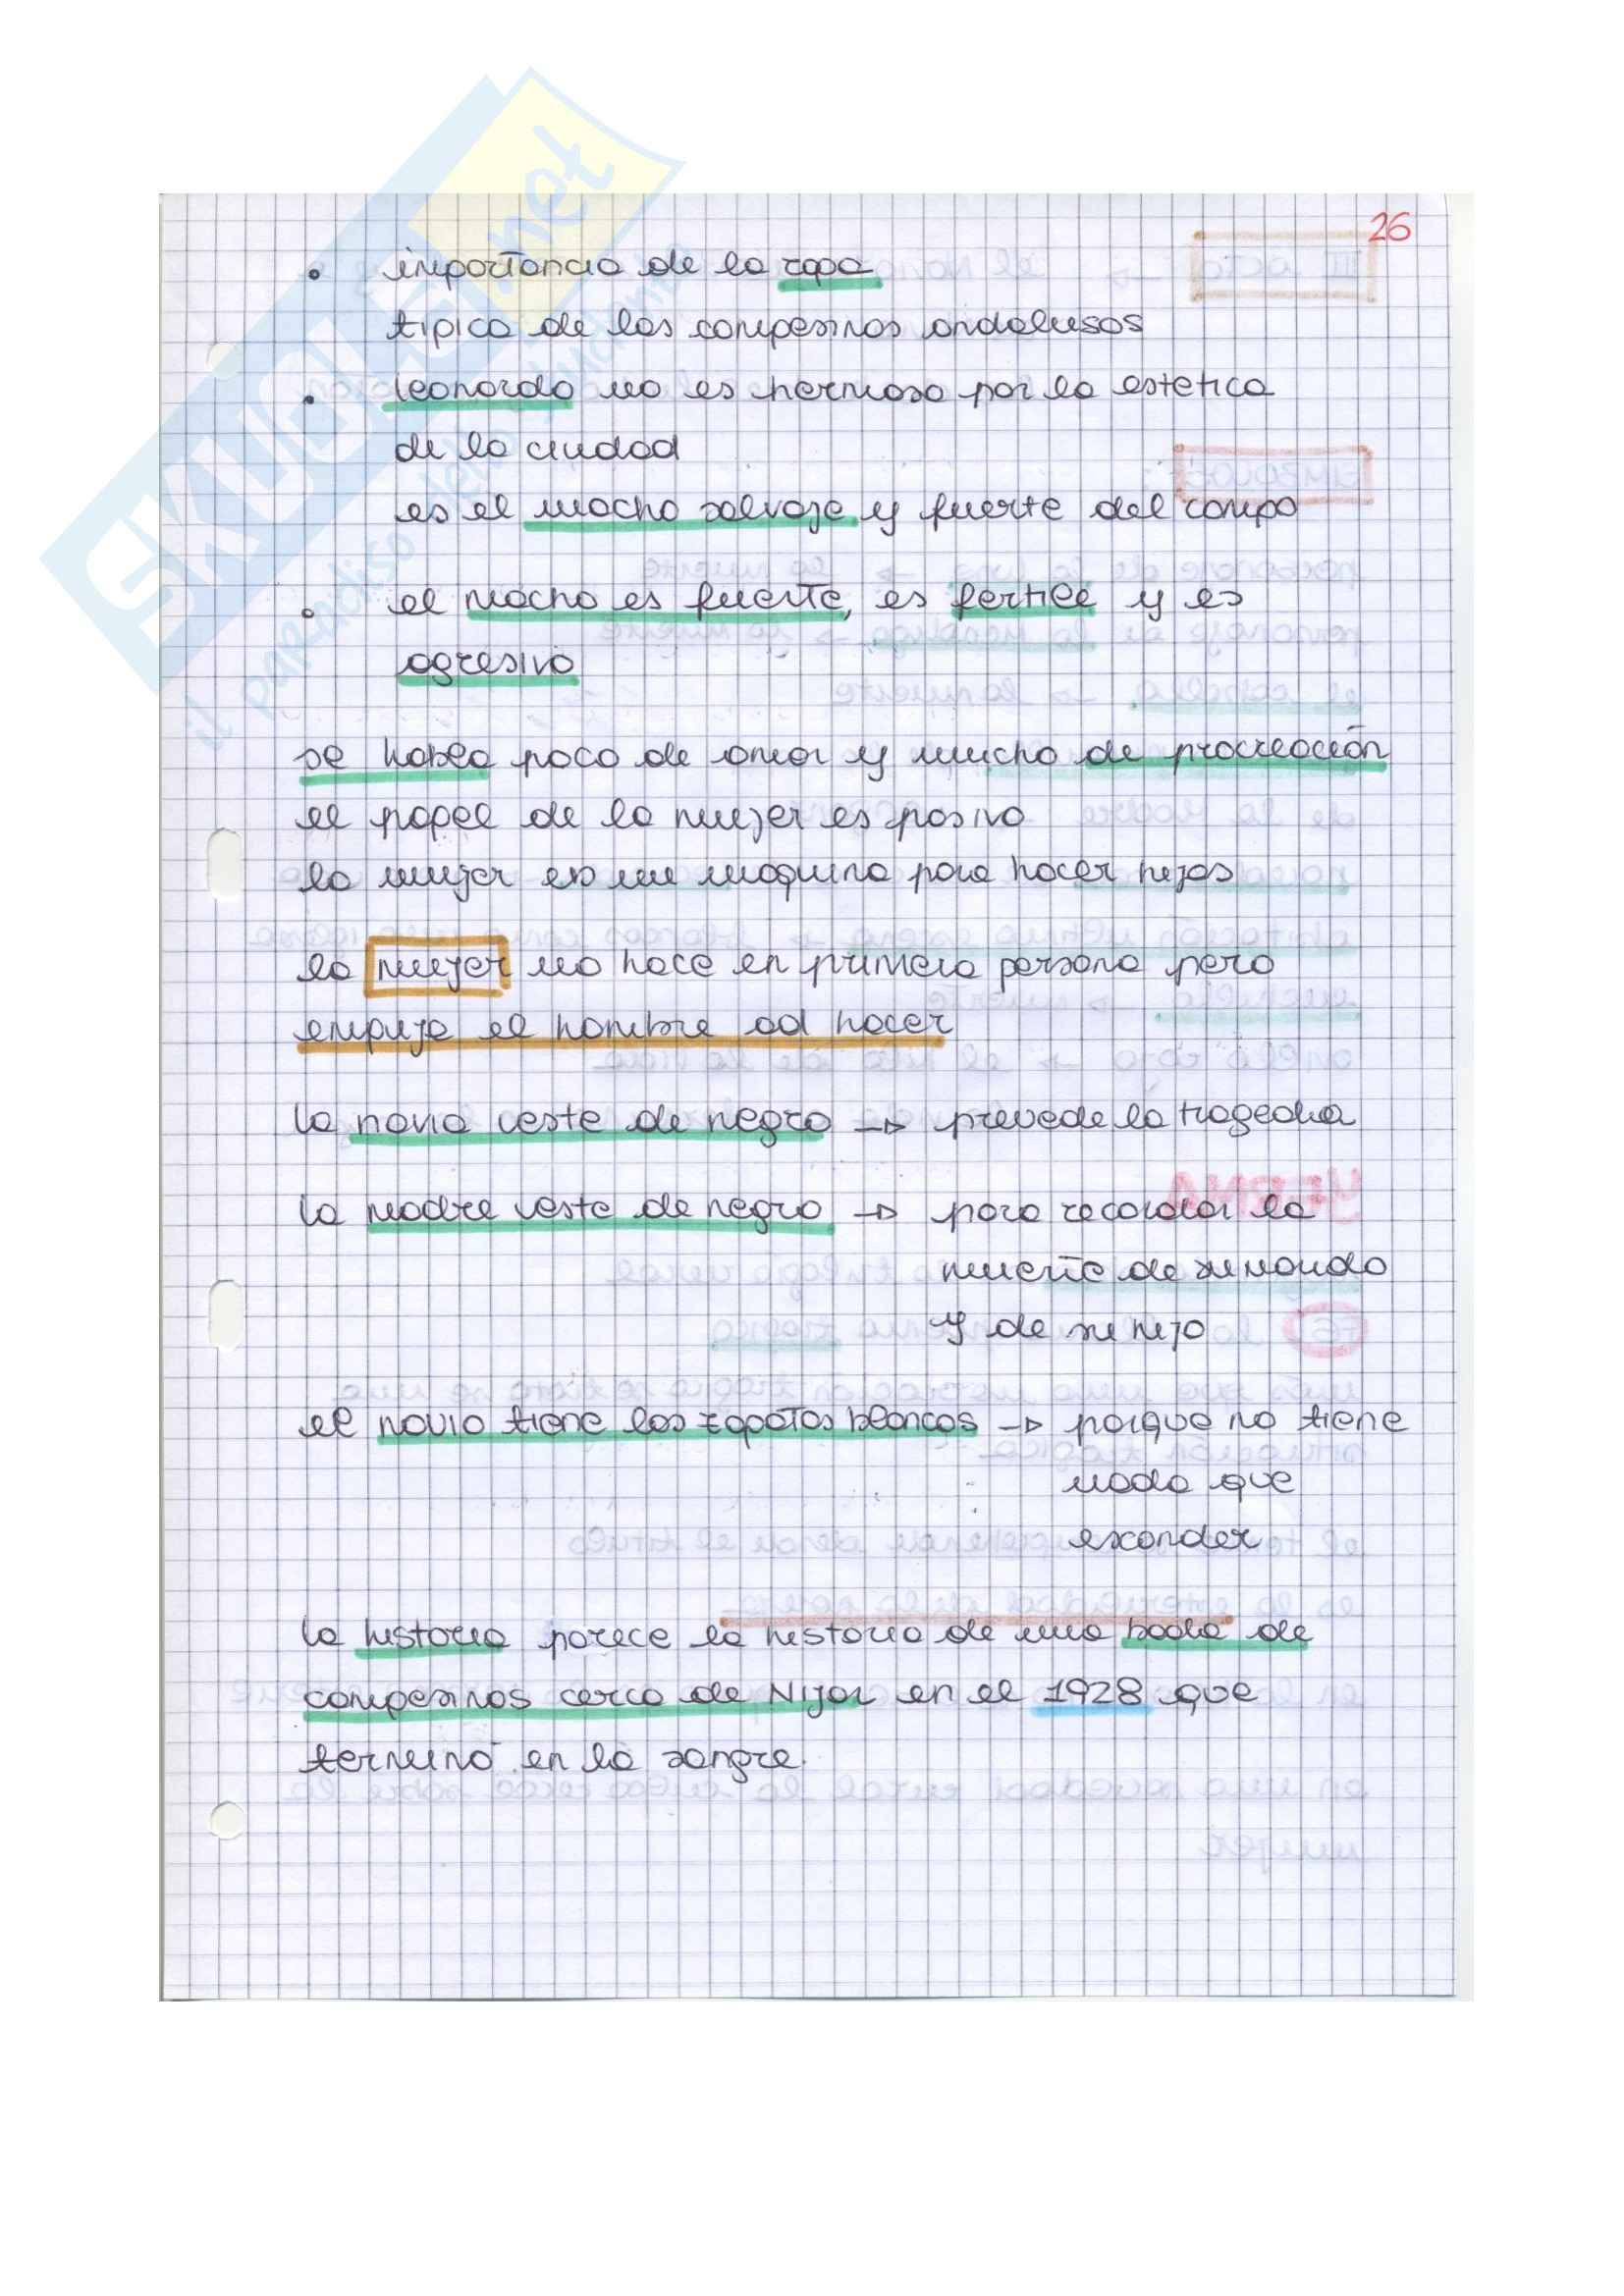 26
• importancia de la ropa
tipica de los campesinos andalusos
• leonardo no es hermoso por la estetica
de la ciudad
es el macho salvaje y fuerte del campo
• el macho es fuerte, es fertil y es
agresivo
se habla poco de amor y mucho de procreación
el papel de la mujer es pasivo
la mujer es un maquina para hacer hijos
la mujer no hace en primera persona pero
empuja el hombre ad hacer
la novia veste de negro → prevede la tragedia
la madre veste de negro → para recordar la
muerte de su marido
y de su hijo
el novio tiene los zapatos blancos → porque no tiene
nada que
esconder
la historia parece la historia de una boda de
campesinos cerca de Nijar en el 1928 que
terminó en la sangre.
SKUOLA.net
il paradiso degli studenti